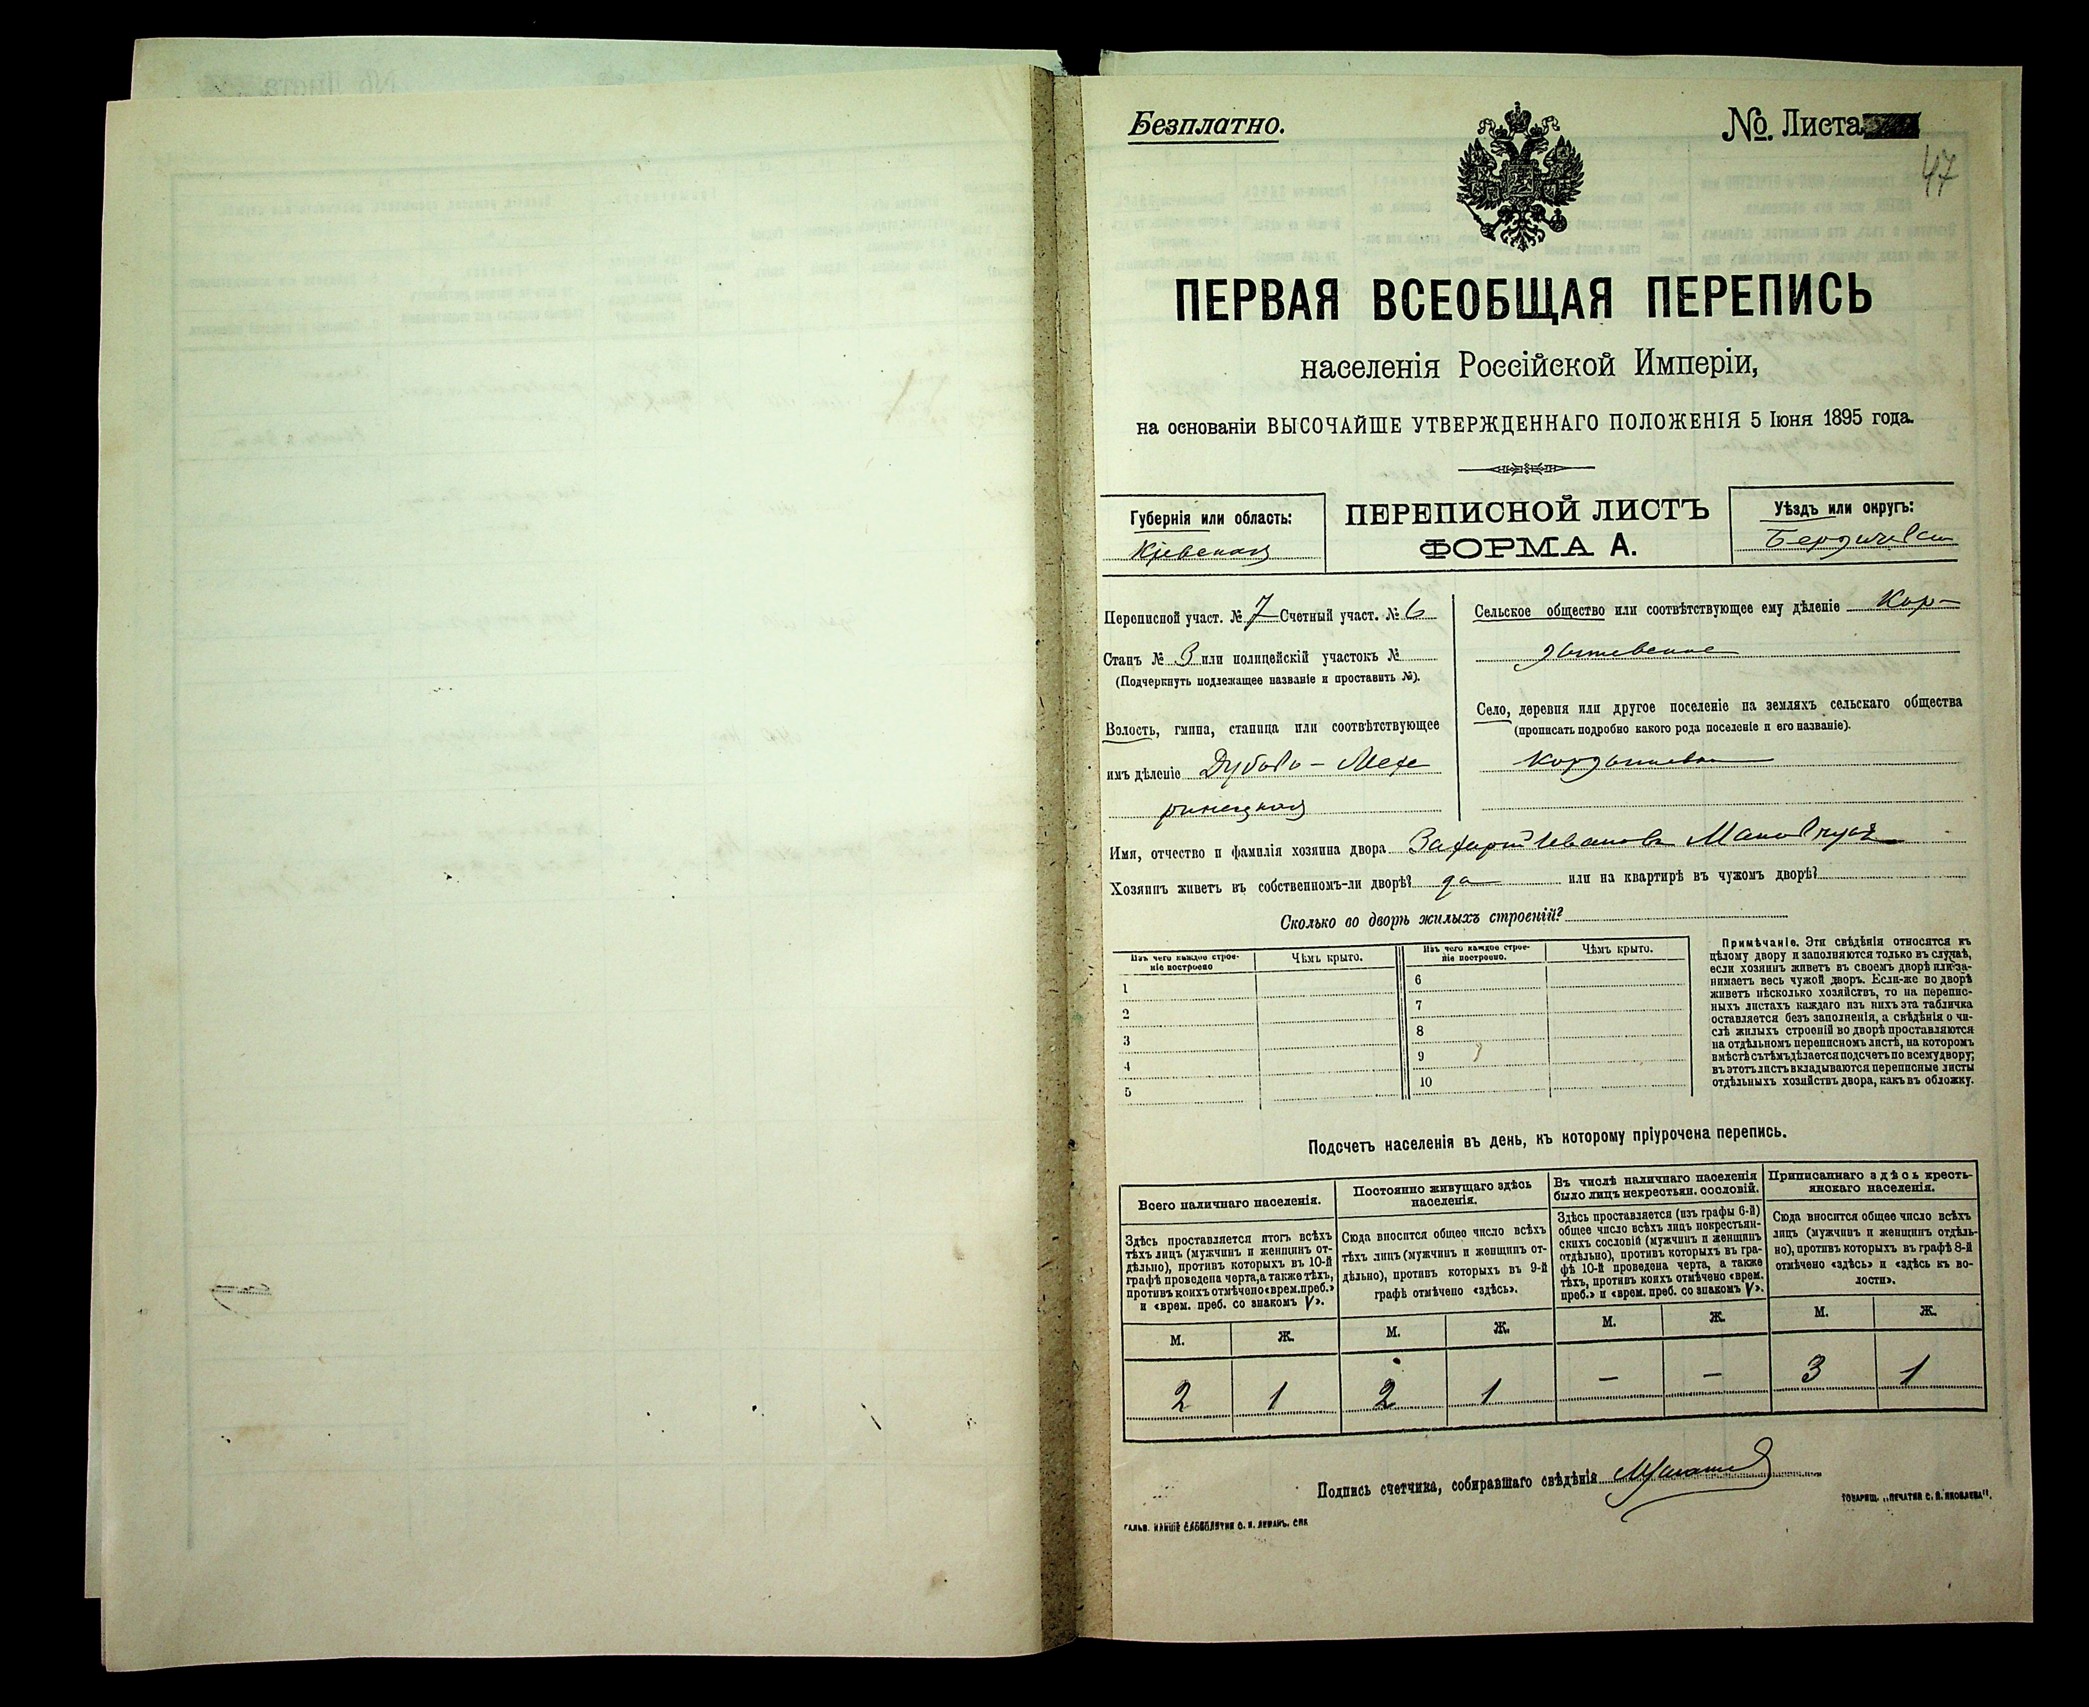 Безплатно.
№. Листа
47
ПЕРВАЯ ВСЕОБЩАЯ ПЕРЕПИСЬ
населенія Россійской Имперіи,
на основаніи ВЫСОЧАЙШЕ УТВЕРЖДЕННАГО ПОЛОЖЕНІЯ 5 Іюня 1895 года.
Губернія или область:
Кіевская
ПЕРЕПИСНОЙ ЛИСТЪ
ФОРМА А.
Уѣздъ или округъ:
Бердичевск
Переписной участ. № 7 Счетный участ. № 6
Станъ № 3 или полицейскій участокъ №
(Подчеркнуть подлежащее названіе и проставить №).
Волость, гмина, станица или соотвѣтствующее
имъ дѣленіе Дубово-Меже
ринецкая
Сельское общество или соотвѣтствующее ему дѣленіе Кор-
дышевское
Село, деревня или другое поселеніе на земляхъ сельскаго общества
(прописать подробно какого рода поселеніе и его названіе).
Кордышевка
Имя, отчество и фамилія хозяина двора Захарій Ивановъ Маковчукъ
Хозяинъ живетъ въ собственномъ-ли дворѣ? да или на квартирѣ въ чужомъ дворѣ?
Сколько во дворѣ жилыхъ строеній?
Изъ чего каждое строе-
ніе построено
Чѣмъ крыто.
1
2
3
4
5
Изъ чего каждое строе-
ніе построено.
Чѣмъ крыто.
6
7
8
9
10
Примѣчаніе. Эти свѣдѣнія относятся къ
цѣлому двору и заполняются только въ случаѣ,
если хозяинъ живетъ въ своемъ дворѣ или за-
нимаетъ весь чужой дворъ. Если-же во дворѣ
живетъ нѣсколько хозяйствъ, то на перепис-
ныхъ листахъ каждаго изъ нихъ эта табличка
оставляется безъ заполненія, а свѣдѣнія о чи-
слѣ жилыхъ строеній во дворѣ проставляются
на отдѣльномъ переписномъ листѣ, на которомъ
вмѣстѣ съ тѣмъ дѣлается подсчетъ по всему двору;
въ этотъ листъ вкладываются переписные листы
отдѣльныхъ хозяйствъ двора, какъ въ обложку.
Подсчетъ населенія въ день, къ которому пріурочена перепись.
Всего наличнаго населенія.
Здѣсь проставляется итогъ всѣхъ
тѣхъ лицъ (мужчинъ и женщинъ от-
дѣльно), противъ которыхъ въ 10-й
графѣ проведена черта, а также тѣхъ,
противъ коихъ отмѣчено «врем. преб.»
и «врем. преб. со знакомъ V».
М. Ж.
2 1
Постоянно живущаго здѣсь
населенія.
Сюда вносится общее число всѣхъ
тѣхъ лицъ (мужчинъ и женщинъ от-
дѣльно), противъ которыхъ въ 9-й
графѣ отмѣчено «здѣсь».
М. Ж.
2 1
Въ числѣ наличнаго населенія
было лицъ некрестьян. сословій.
Здѣсь проставляется (изъ графы 6-й)
общее число всѣхъ лицъ некрестьян-
скихъ сословій (мужчинъ и женщинъ
отдѣльно), противъ которыхъ въ гра-
фѣ 10-й проведена черта, а также
тѣхъ, противъ коихъ отмѣчено «врем.
преб.» и «врем. преб. со знакомъ V».
М. Ж.
— —
Приписаннаго здѣсь кресть-
янскаго населенія.
Сюда вносится общее число всѣхъ
лицъ (мужчинъ и женщинъ отдѣль-
но), противъ которыхъ въ графѣ 8-й
отмѣчено «здѣсь» и «здѣсь къ во-
лости».
М. Ж.
3 1
Подпись счетчика, собиравшаго свѣдѣнія
ТОВАРИЩ. „ПЕЧАТНЯ С. П. ЯКОВЛЕВА".